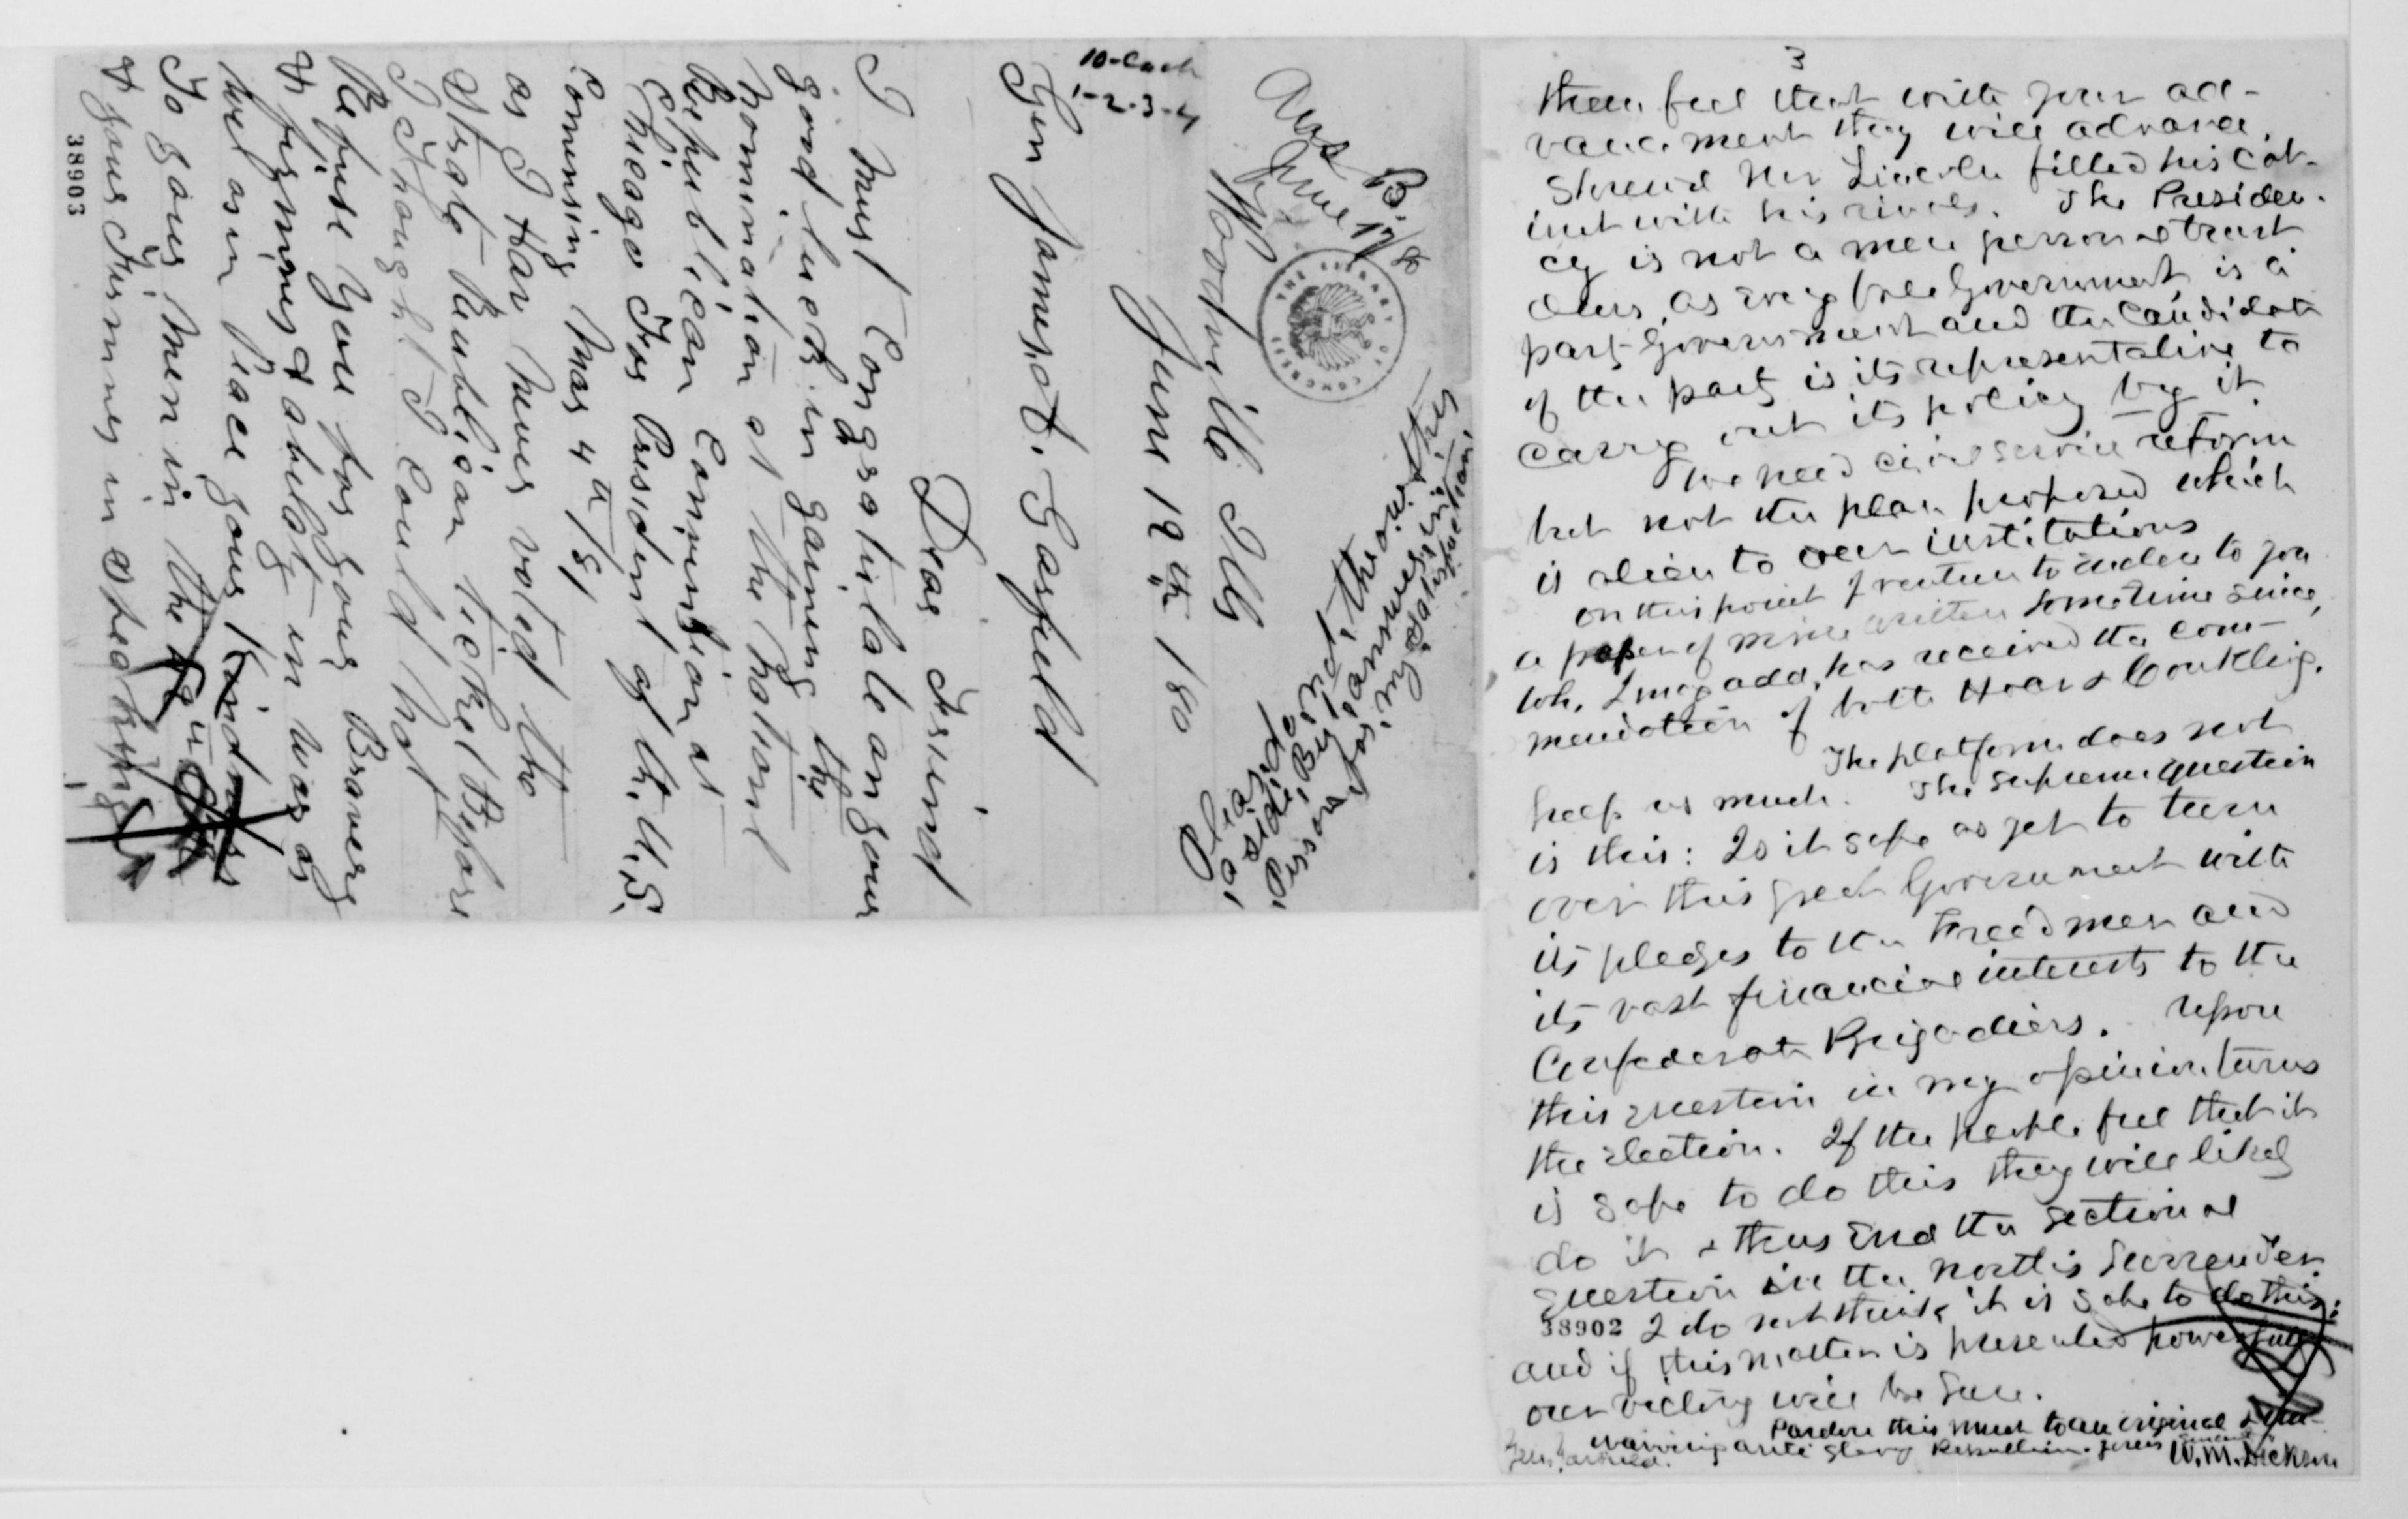 10-Each
1-2-3-4
Ans B.
June 17/80
Woodville Ills
June 12th 180
Gen James, A. Garfield
Dear Friend
I must Congratulate an your
good luck in gaining the
nomination at the National
Republican Convinsion at
Chicago For President of the U.S.
Comensing Mar 4th/81
as I Hav never voted the
Strate Republican ticket Before
I Thought I Could not
Refuse you for your Bravery
& firmnes & ability in War as
wel as in Peace your Kindness
To your Men in the
& your Firmnes in
38903
THE LIBRARY OF CONGRESS
3
them feel that with your ad-
vancement they will advance.
Shrewd Mr Lincoln filled his Cab-
inet with his rivals. The Presiden-
cy is not a mere personal trust
Ours, as every free Government is a
party Government and the Candidate
of the party is its representative to
carry out its policy by it.
We need civil service reform
but not the plan proposed which
is alien to our institutions
on this point I venture to enclose to you
a paper of mine written sometime since,
wh. I may add, has received the com-
mendation of both Hoar & Conkling.
The platform does not
help us much. The supreme question
is this: Is it safe as yet to turn
over this great Government with
its pledges to the Freedmen and
its vast financial interests to the
Confederate Brigadiers. Upon
this question in my opinion turns
the election. If the people feel that it
is safe to do this they will likely
do it & thus end the sectional
question in the North's surrender
38902 I do not think it is safe to do this;
and if this matter is presented powerfully
our victory will be sure.
Pardon this much to an original &
anti Slavery
W. M. Dickson